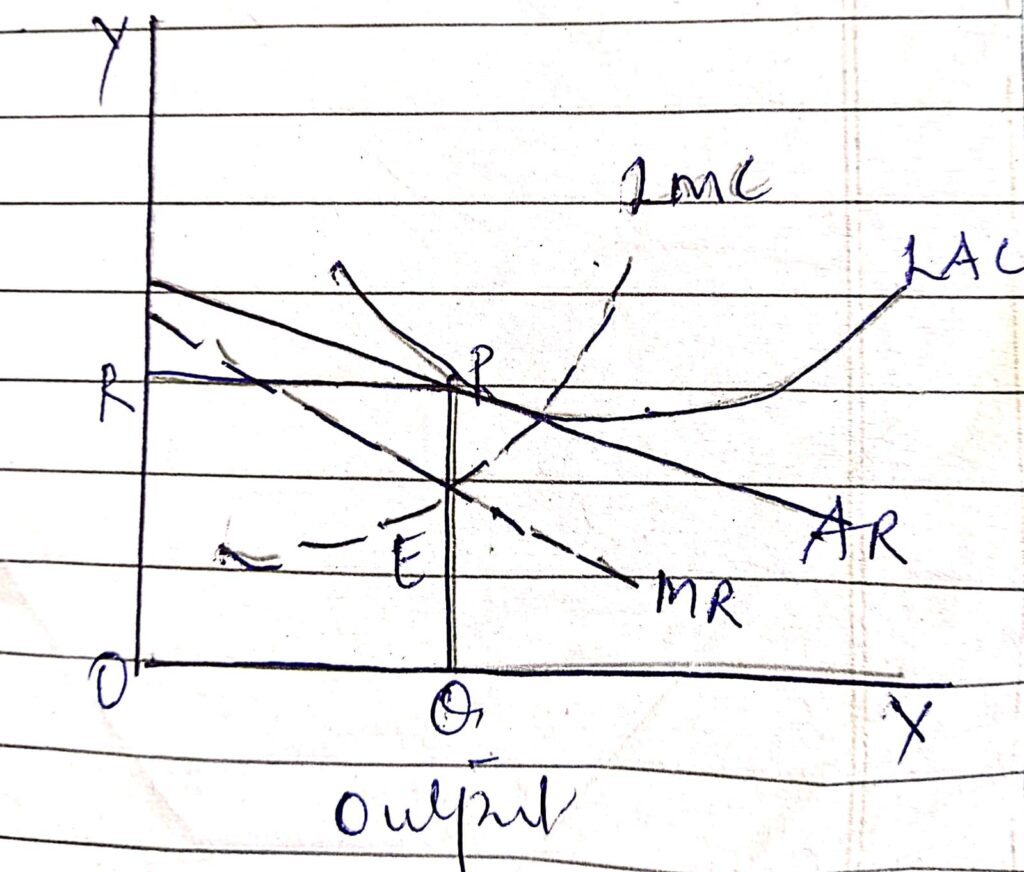 Y
LMC
LAC
P
R
AR
E
MR
O
Q1
X
Output